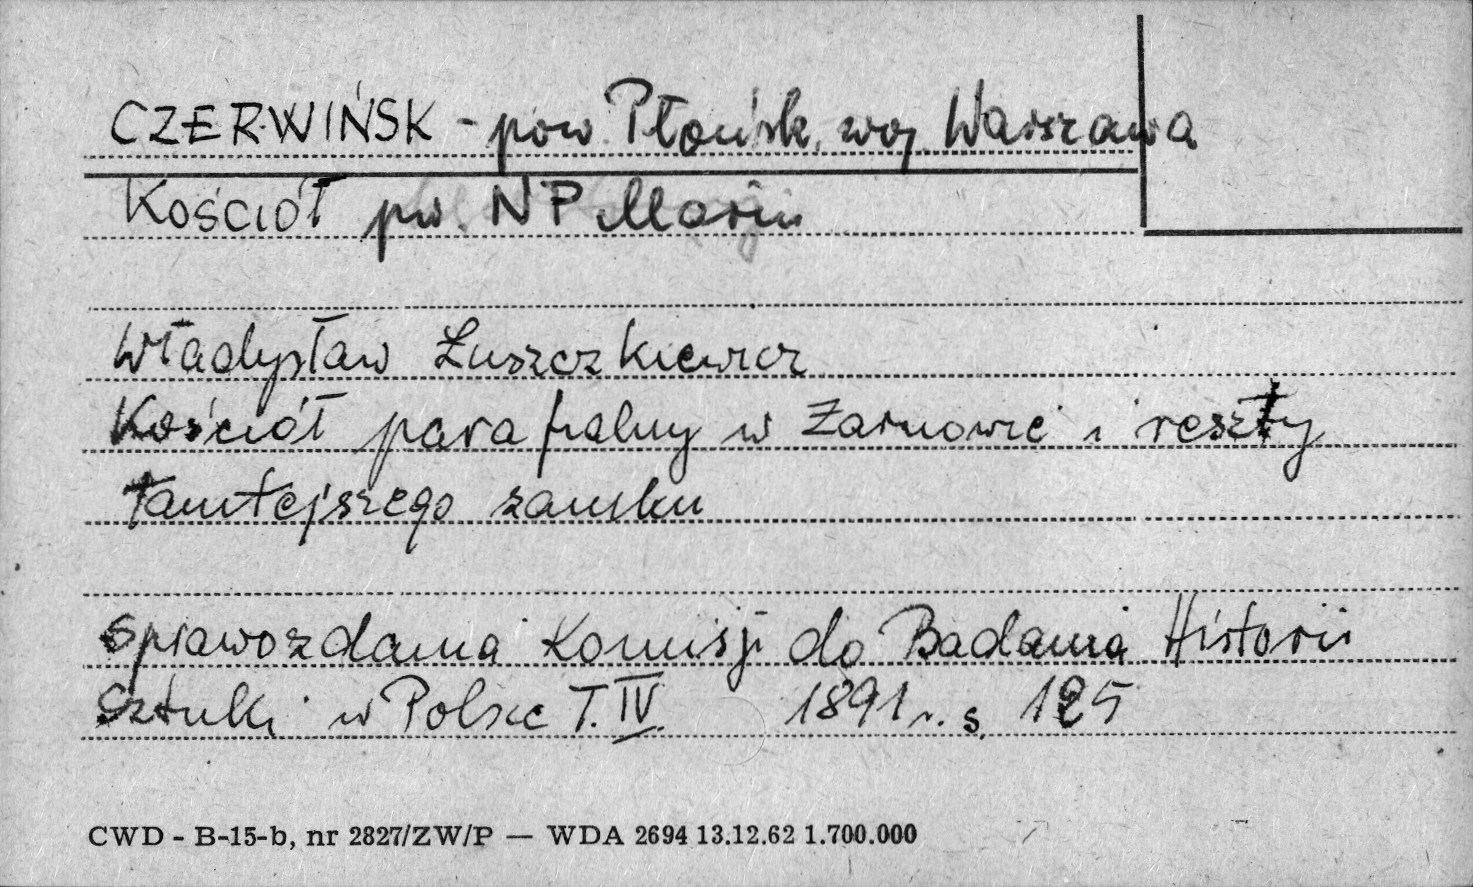 CZERWIŃSK - pow. Płońsk, woj. Warszawa
Kościół pw. NP Marii
Władysław Łuszczkiewicz
Kościół parafialny w Żarnowie i reszty
tamtejszego zamku
Sprawozdania Komisji do Badania Historii
Sztuki w Polsce T. IV. 1891 r. s. 125
CWD - B-15-b, nr 2827/ZW/P — WDA 2694 13.12.62 1.700.000